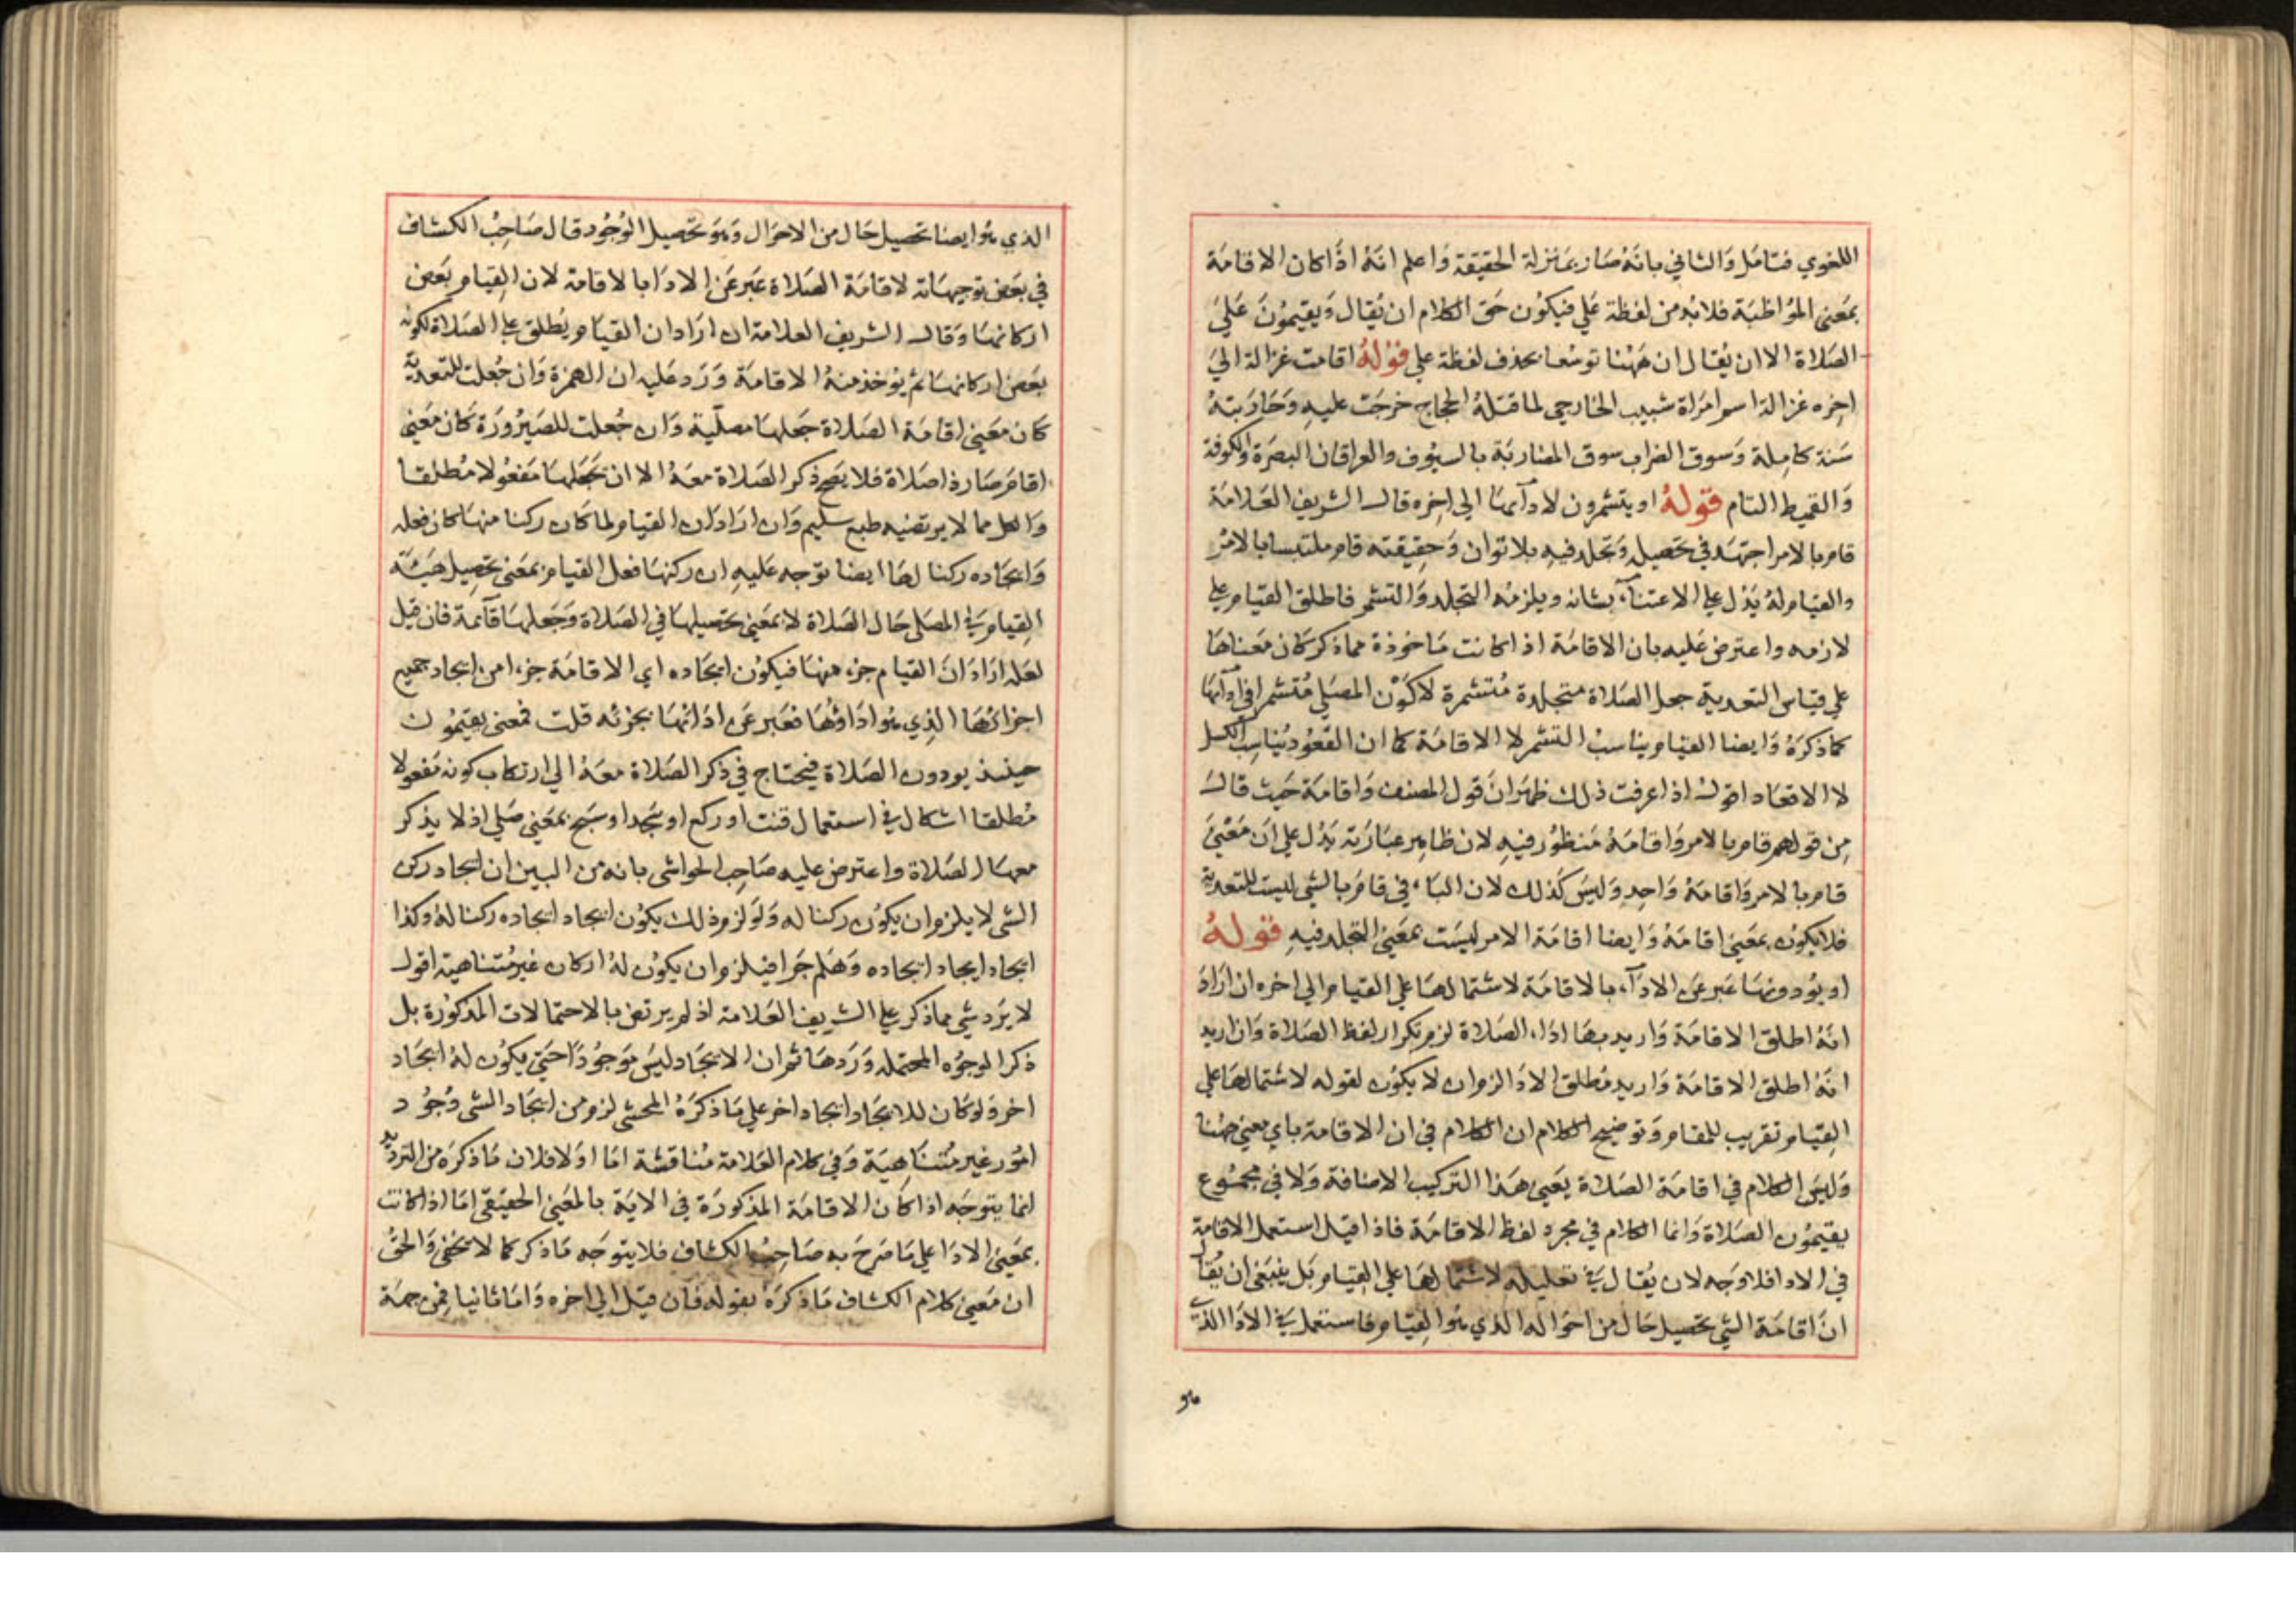 اللغوي فتامل والثاني بانه صار بمنزلة الحقيقة واعلم انه اذا كان الاقامة
بمعنى المواظبة فلا بد من لفظة علي فيكون حق الكلام ان يقال ويقيمون علي
الصلاة الا ان يقال ان ههنا توسعا بحذف لفظة علي قوله اقامت غزالة الي
اخره غزالة اسم امراة شبيب الخارجي لما قتله الحجاج خرجت عليه وحاربته
سنة كاملة وسوق الضراب سوق المضاربة بالسيوف والعراقان البصرة والكوفة
والقميط التام قوله او يتشمرون لادآئها الي اخره قال الشريف العلامة
قام بالامر اجتهد في تحصيله وتجلد فيه بلا توان وحقيقته قام ملتبسا بالامر
والقيام له يدل علي الاعتنآء بشانه ويلزمه التجلد والتشمر فاطلق القيام علي
لازمه واعترض عليه بان الاقامة اذا كانت ماخوذة مما ذكر كان معناها
علي قياس التعدية جعل الصلاة متجلدة متشمرة لا كون المصلي متشمرا في ادآئها
كما ذكره وايضا القيام يناسب التشمر لا الاقامة كما ان القعود يناسب الكسل
لا الاقعاد اقول اذا عرفت ذلك ظهر ان قول المصنف واقامة حيث قال
من قولهم قام بالامر واقامه منظور فيه لان ظاهر عبارته يدل علي ان معني
قام بالامر واقامه واحد وليس كذلك لان الباء في قام بالشي ليست للتعدية
فلا يكون بمعني اقامه وايضا اقامة الامر ليست بمعني التجلد فيه قوله
او يؤدونها عبر عن الادآء بالاقامة لاشتمالها علي القيام الي اخره ان اراد
انه اطلق الاقامة واريد بها اداء الصلاة لزم تكرار لفظ الصلاة وان اريد
انه اطلق الاقامة واريد مطلق الادا لزم ان لا يكون لقوله لاشتمالها علي
القيام تقريب للمقام وتوضيح الكلام ان الكلام في ان الاقامة باي معني ههنا
وليس الكلام في اقامة الصلاة يعني هذا التركيب الاضافة ولا في مجموع
يقيمون الصلاة وانما الكلام في مجرد لفظ الاقامة فاذا قيل استعمل الاقامة
في الادا فلا وجه لان يقال في تعليله لاشتمالها علي القيام بل ينبغي ان يقال
ان اقامة الشي تحصيل حال من احواله الذي هو القيام فاستعمل في الادا الذي
الذي هو ايضا تحصيل حال من الاحوال وهو تحصيل الوجود قال صاحب الكشاف
في بعض توجيهاته لاقامة الصلاة عبر عن الادا بالاقامة لان القيام بعض
اركانها وقال الشريف العلامة ان اراد ان القيام يطلق علي الصلاة لكونه
بعض اركانها ثم يؤخذ منه الاقامة ورد عليه ان الهمزة وان جعلت للتعدية
كان معني اقامة الصلاة جعلها مصلية وان جعلت للصيرورة كان معني
اقام صار ذا صلاة فلا يصح ذكر الصلاة معه الا ان نجعلها مفعولا مطلقا
والكل مما لا يرتضيه طبع سليم وان اراد ان القيام لما كان ركنا منها كان فعله
وايجاده ركنا لها ايضا توجه عليه ان ركنها فعل القيام بمعني تحصيل هيئة
القيام في المصلي حال الصلاة لا بمعني تحصيلها في الصلاة وجعلها قآئمة فان قيل
لعله اراد ان القيام جزء منها فيكون ايجاده اي الاقامة جزءا من ايجاد جميع
اجزائها الذي هو اداؤها فعبر عن ادائها بجزئه قلت فمعني يقيمون
حينئذ يودون الصلاة فيحتاج في ذكر الصلاة معه الي ارتكاب كونه مفعولا
مطلقا اشكال في استعمال قنت او ركع او سجد او سبح بمعني صلي اذ لا يذكر
معها الصلاة واعترض عليه صاحب الحواشي بانه من البين ان ايجاد ركن
الشي لا يلزم ان يكون ركنا له ولو لزم ذلك يكون ايجاد ايجاده ركنا له وكذا
ايجاد ايجاد ايجاده وهلم جرا فيلزم ان يكون له اركان غير متناهية اقول
لا يرد شي مما ذكر علي الشريف العلامة اذ لم يرتض بالاحتمالات المذكورة بل
ذكر الوجوه المحتمله وردها ثم ان الايجاد ليس موجودا حتي يكون له ايجاد
اخر ولو كان للايجاد ايجاد اخر علي ما ذكره المحشي لزم من ايجاد الشي وجود
امور غير متناهية وفي كلام العلامة مناقشة اما اولا فلان ما ذكره من الترديد
انما يتوجه اذا كان الاقامة المذكورة في الاية بالمعني الحقيقي اما اذا كانت
بمعني الادا علي ما صرح به صاحب الكشاف فلا يتوجه ما ذكر كما لا يخفي والحق
ان معني كلام الكشاف ما ذكره بقوله فان قيل الي اخره واما ثانيا فمن جهة